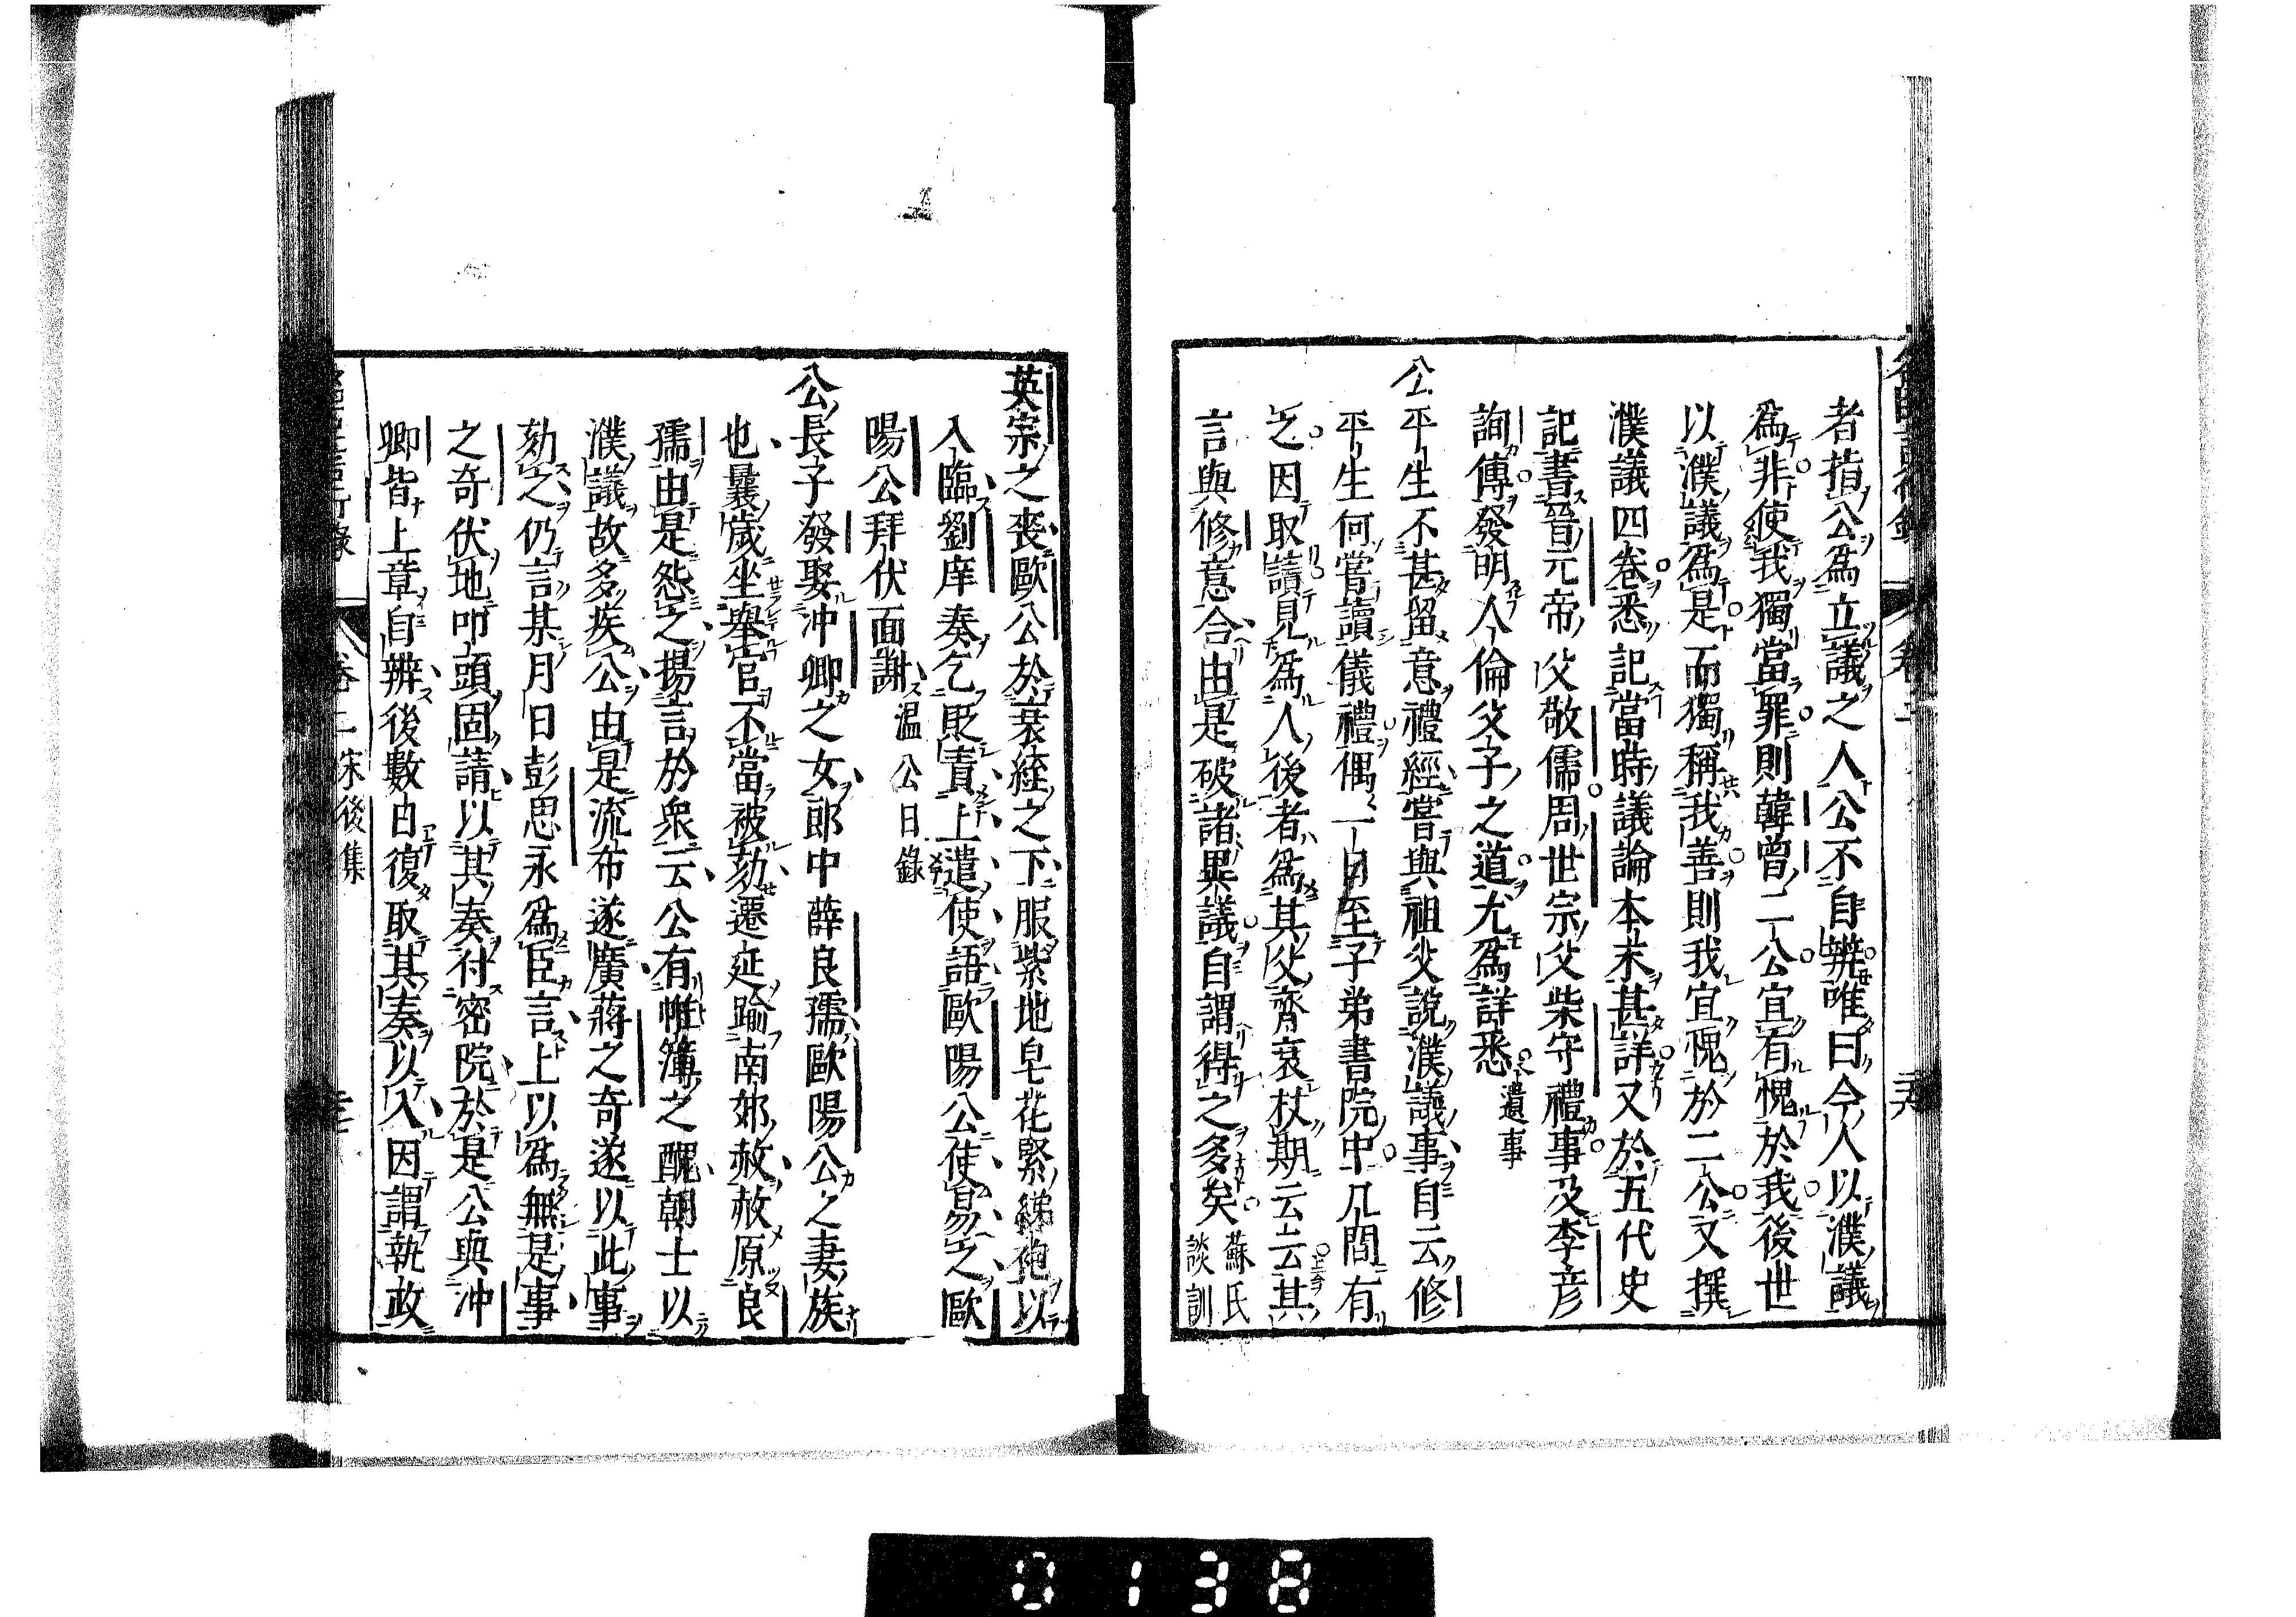 者指公爲立議之人公不自辨唯曰今人以濮議
爲非使我獨當罪則韓曾二公宜有愧於我後世
以濮議爲是而獨稱我善則我宜愧於二公又撰
濮議四卷悉記當時議論本末甚詳又於五代史
記書晉元帝父敬儒周世宗父柴守禮事及李彦
詢傳發明人倫父子之道尤爲詳悉遺事
公平生不甚留意禮經嘗與祖父說濮議事自云修
平生何嘗讀儀禮偶一日至子弟書院中几間有
之因取讀見爲人後者爲其父齊衰杖期云云其
言與修意合由是破諸異議自謂得之多矣蘇氏談訓
英宗之喪歐公於衰絰之下服紫地皂花緊絲袍以
入臨劉庠奏乞貶責上遣使語歐陽公使易之歐
陽公拜伏面謝温公日錄
公長子發娶冲卿之女郎中薛良孺歐陽公之妻族
也曩歲坐舉官不當被劾遷延踰南郊赦赦原良
孺由是怨之揚言於衆云公有帷簿之醜朝士以
濮議故多疾公由是流布遂廣蔣之奇遂以此事
劾之仍言某月日彭思永爲臣言上以爲無是事
之奇伏地叩頭固請以其奏付密院於是公與冲
卿皆上章自辨後數日復取其奏以入因謂執政
卷二宋後集
0138